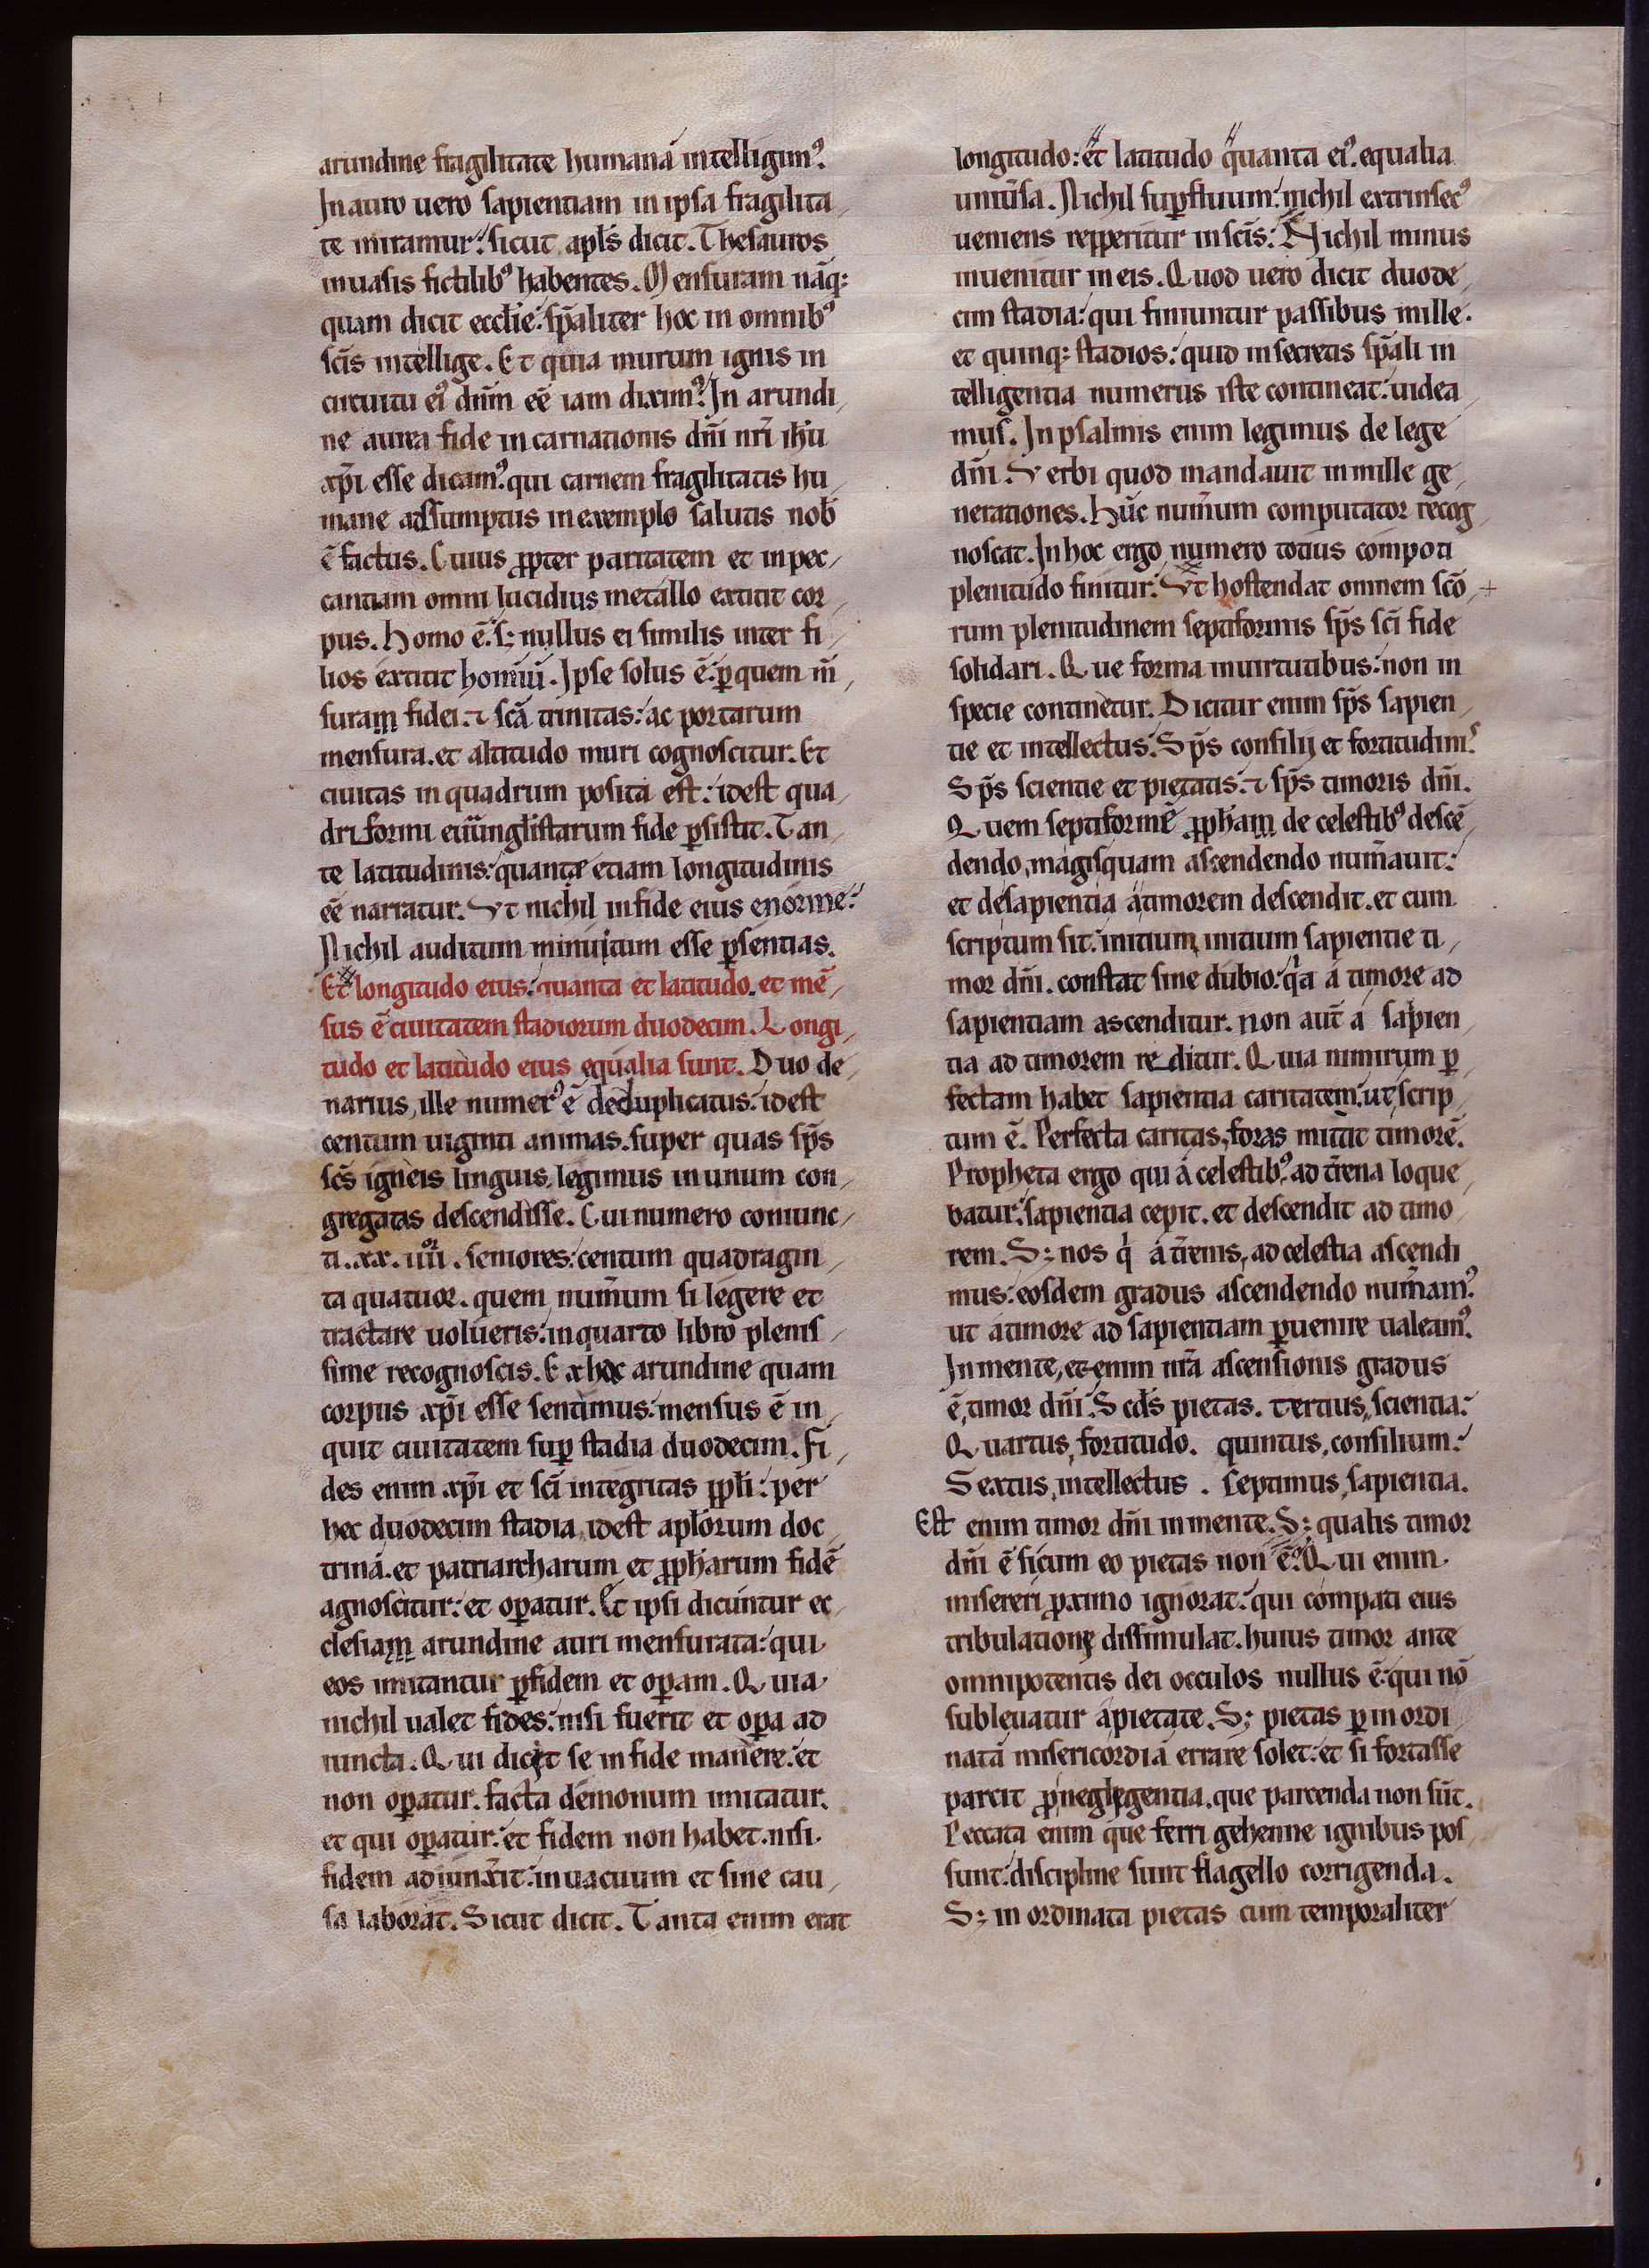 arundine fragilitate humanā intelligimꝰ.
In auro uero sapientiam in ipsa fragilita
te miramur: sicut apl̄s dicit. Thesauros
in uasis fictilibꝰ habentes. Mensuram nāq;
quam dicit eccl̄ie: sp̄aliter hoc in omnibꝰ
sc̄is intellige. Et quia murum ignis in
circuitu eiꝰ dn̄m eē iam diximꝰ: In arundi
ne aurea fide incarnationis dn̄i nr̄i ih̄u
xp̄i esse dicamꝰ. qui carnem fragilitatis hu
mane adsumptus in exemplo salutis nob̄
ē factus. Cuius ꝓpter paritatem et inpec
cantiam omni lucidius metallo extitit cor
pus. Homo ē. s; nullus ei similis inter fi
lios extitit hominū. Ipse solus ē. ꝑ quem m̄
suram fidei. ⁊ sc̄a trinitas: ac portarum
mensura. et altitudo muri cognoscitur. Et
ciuitas in quadrum posita est: idest qua
driformi euūngl̄istarum fide ꝑsistit. Tan
te latitudinis: quante etiam longitudinis
eē narratur. Ut nichil in fide eius enorme:
Nichil auditum minuitum esse p̄sentias.
Et longitudo eius: quanta et latitudo. et mē
sus ē ciuitatem stadiorum duodecim. Longi
tudo et latitudo eius equalia sunt. Duo de
narius, ille numerꝰ ē deduplicatus: idest
centum uiginti animas. super quas sp̄s
sc̄s igneis linguis, legimus in unum con
gregatas descendisse. Cui numero coniunc
ti .xx. iiii^or. seniores: centum quadragin
ta quatuor. quem num̄um si legere et
tractare uolueris: in quarto libro plenis
sime recognoscis. Ex hac arundine quam
corpus xp̄i esse sentimus: mensus ē in
quit ciuitatem suꝑ stadia duodecim. Fi
des enim xp̄i et sc̄i integritas ppl̄i: per
hec duodecim stadia, idest apl̄orum doc
trinā. et patriarcharum et ꝓph̄arum fidē
agnoscitur: et oꝑatur. Et ipsi dicuntur ec
clesiam arundine auri mensurata: qui
eos imitantur ꝑ fidem et oꝑam. Quia
nichil ualet fides: nisi fuerit et oꝑa ad
iuncta. Qui dicit se in fide manere: et
non oꝑatur. facta demonum imitatur.
et qui oꝑatur: et fidem non habet. nisi
fidem adiunx̄it: in uacuum et sine cau
sa laborat. Sicut dicit. Tanta enim erat
longitudo: et latitudo quanta eiꝰ. equalia
uniūsa. Nichil suꝑfluum: nichil extrinsecꝰ
ueniens repperitur in sc̄is: Nichil minus
inuenitur in eis. Quod uero dicit duode
cim stadia: qui finiuntur passibus mille.
et quinq; stadios: quid in secretis sp̄ali in
telligentia numerus iste contineat: uidea
mus. In psalmis enim legimus de lege
dn̄i. Verbi quod mandauit in mille ge
nerationes. Hūc num̄um computator recog
noscat. In hoc ergo numero totius compoti
plenitudo finitur. Ut hostendat omnem sc̄o +
rum plenitudinem septiformis sp̄s sc̄i fide
solidari. Que forma in uirtutibus: non in
specie continetur. Dicitur enim sp̄s sapien
tie et intellectus: Sp̄s consilij et fortitudinis
Sp̄s scientie et pietatis: ⁊ sp̄s timoris dn̄i.
Quem septiformē ꝓph̄am de celestibꝰ descē
dendo, magis quam ascendendo num̄auit:
et de sapientia a timorem descendit. et cum
scriptum sit: initium, initium sapientie ti
mor dn̄i. constat sine dubio: q̄a a timore ad
sapientiam ascenditur. non aut̄ a sapien
tia ad timorem reditur. Quia nimirum ꝑ
fectam habet sapientia caritatem. ut scrip
tum ē. Perfecta caritas, foras mittit timorē.
Propheta ergo qui a celestibꝰ, ad tr̄rena loque
batur: sapientia cepit. et descendit ad timo
rem. S; nos q̇ a tr̄enis, ad celestia ascendi
mus: eosdem gradus ascendendo num̄amꝰ.
ut a timore ad sapientiam ꝑuenire ualeamꝰ.
In mente, et enim nr̄a ascensionis gradus
ē, timor dn̄i. Sc̄ds pietas. tertius, scientia:
Quartus, fortitudo. quintus, consilium:
Sextus, intellectus. septimus, sapientia.
Est enim timor dn̄i in mente. S; qualis timor
dn̄i ē si cum eo pietas non ē? Qui enim
misereri ꝓximo ignorat: qui compati eius
tribulatione dissimulat. huius timor ante
omnipotentis dei occulos nullus ē: qui nō
subleuatur a pietate. S; pietas ꝑ inordi
natā misericordiā errare solet: et si fortasse
parcit ꝓ neglegentia. que parcenda non sūt.
Peccata enim que ferri gehenne ignibus pos
sunt: discipline sunt flagello corrigenda.
S; in ordinata pietas cum temporaliter